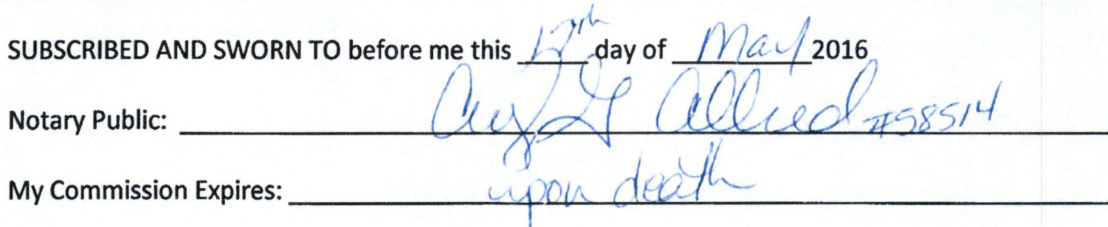 SUBSCRIBED AND SWORN TO before me this 17th day of May 2016
Notary Public: Allred #58514
My Commission Expires: upon death